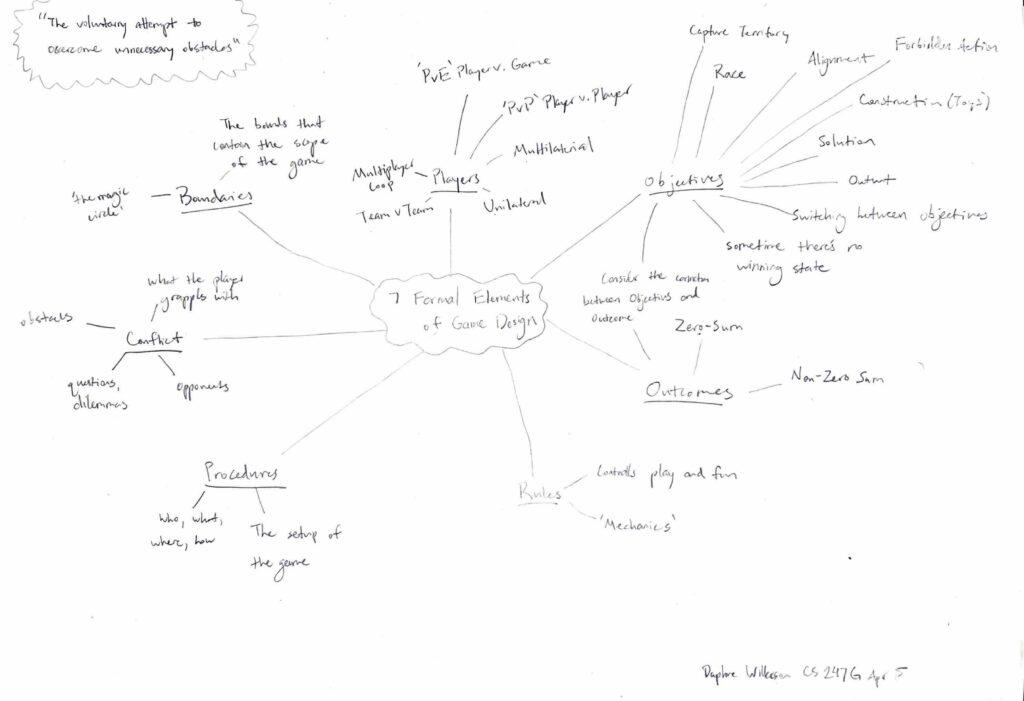 "The voluntary attempt to
overcome unnecessary obstacles"
Capture Territory
Race
Alignment
Forbidden Action
Construction (Toys)
Solution
Outwit
Switching between objectives
sometime there's no
winning state
Objectives
'PvE' Player v. Game
'PvP' Player v. Player
Multilaterial
Multiplayer
Loop
Players
Team v Team
Unilateral
The bounds that
contain the scope
of the game
'the magic
circle'
Boundaries
7 Formal Elements
of Game Design
Consider the
between Objectives and
Outcome
Zero-Sum
Non-Zero Sum
Outcomes
what the player
grapples with
obstacles
Conflict
questions,
dilemmas
opponents
Procedures
who, what,
where, how
The setup of
the game
Rules
Controlls play and fun
'Mechanics'
Daphne Wilkerson CS 247G Apr 5